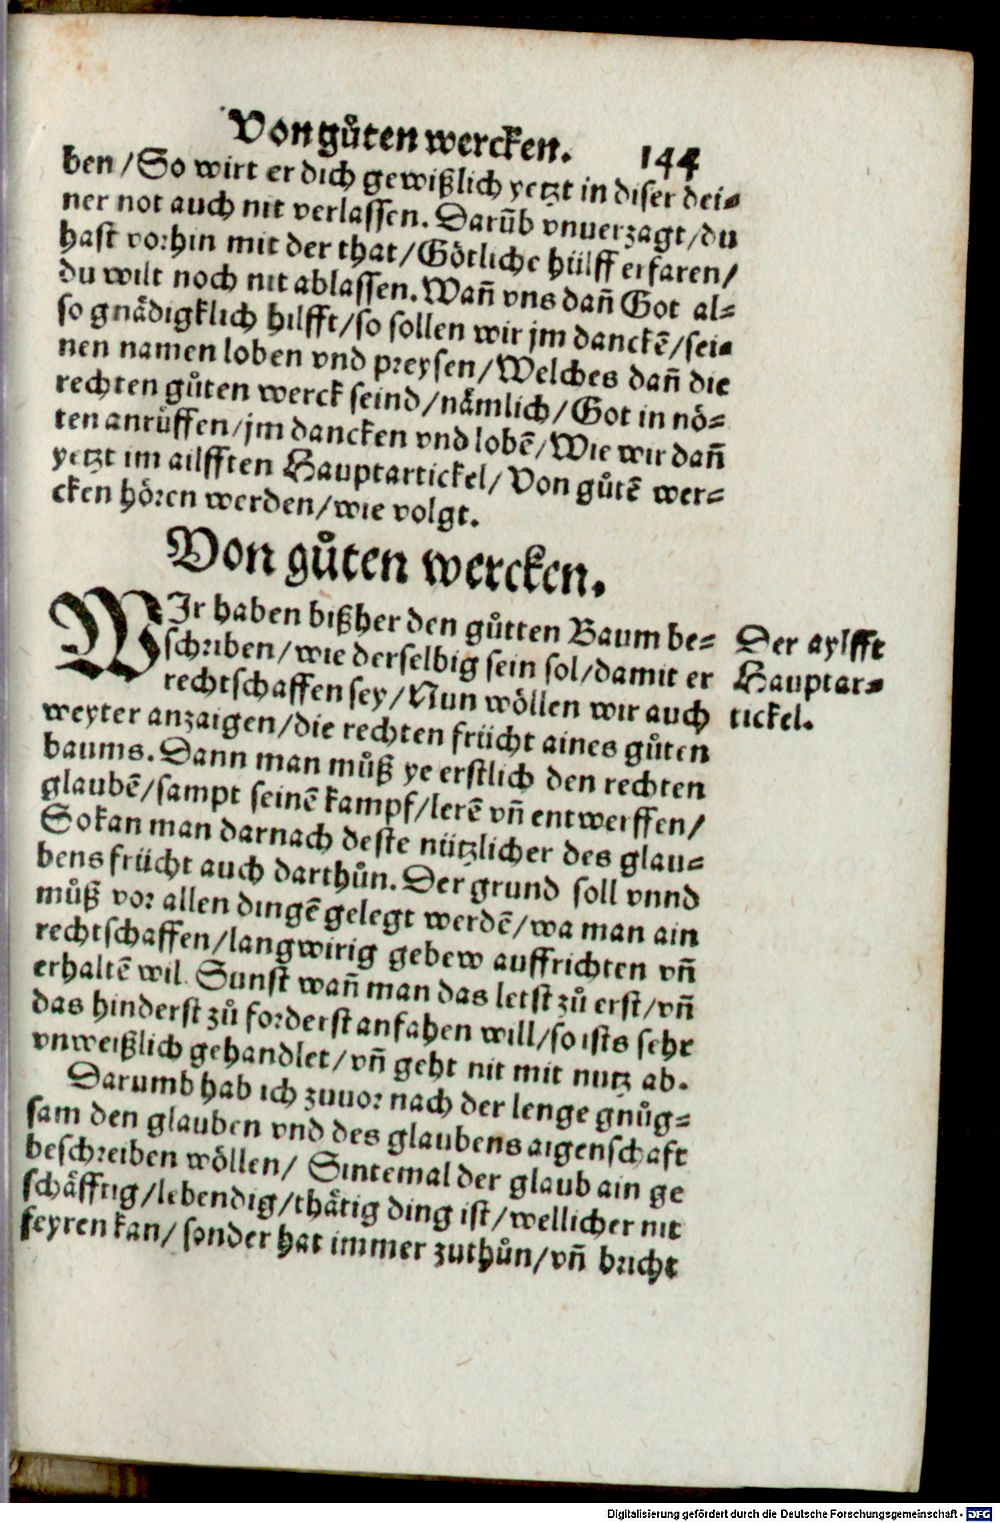 Von gůten wercken. 144
ben / So wirt er dich gewißlich yetzt in diser dei⸗
ner not auch nit verlassen. Darūb vnuerzagt / du
hast vorhin mit der that / Götliche hülff erfaren /
du wilt noch nit ablassen. Wañ vns dañ Got al⸗
so gnädigklich hilfft / so sollen wir jm danckē / sei⸗
nen namen loben vnd preysen / Welches dañ die
rechten gůten werck seind / nämlich / Got in nö⸗
ten anrüffen / jm dancken vnd lobē / Wie wir dañ
yetzt im ailfften Hauptartickel / Von gůtē wer⸗
cken hören werden / wie volgt.
Von gůten wercken.
WIr haben bißher den gůtten Baum be⸗
schriben / wie derselbig sein sol / damit er
rechtschaffen sey / Nun wöllen wir auch
weyter anzaigen / die rechten frücht aines gůten
baums. Dann man můß ye erstlich den rechten
glaubē / sampt seinē kampf / lerē vñ entwerffen /
So kan man darnach deste nützlicher des glau⸗
bens frücht auch darthůn. Der grund soll vnnd
můß vor allen dingē gelegt werdē / wa man ain
rechtschaffen / langwirig gebew auffrichten vñ
erhaltē wil. Sunst wañ man das letst zů erst / vñ
das hinderst zů forderst anfahen will / so ists sehr
vnweißlich gehandlet / vñ geht nit mit nutz ab.
Darumb hab ich zuuor nach der lenge gnůg⸗
sam den glauben vnd des glaubens aigenschaft
beschreiben wöllen / Sintemal der glaub ain ge
schäfftig / lebendig / thätig ding ist / wellicher nit
feyren kan / sonder hat immer zuthůn / vñ bricht
Der aylfft
Hauptar⸗
tickel.
Digitalisierung gefördert durch die Deutsche Forschungsgemeinschaft - DFG